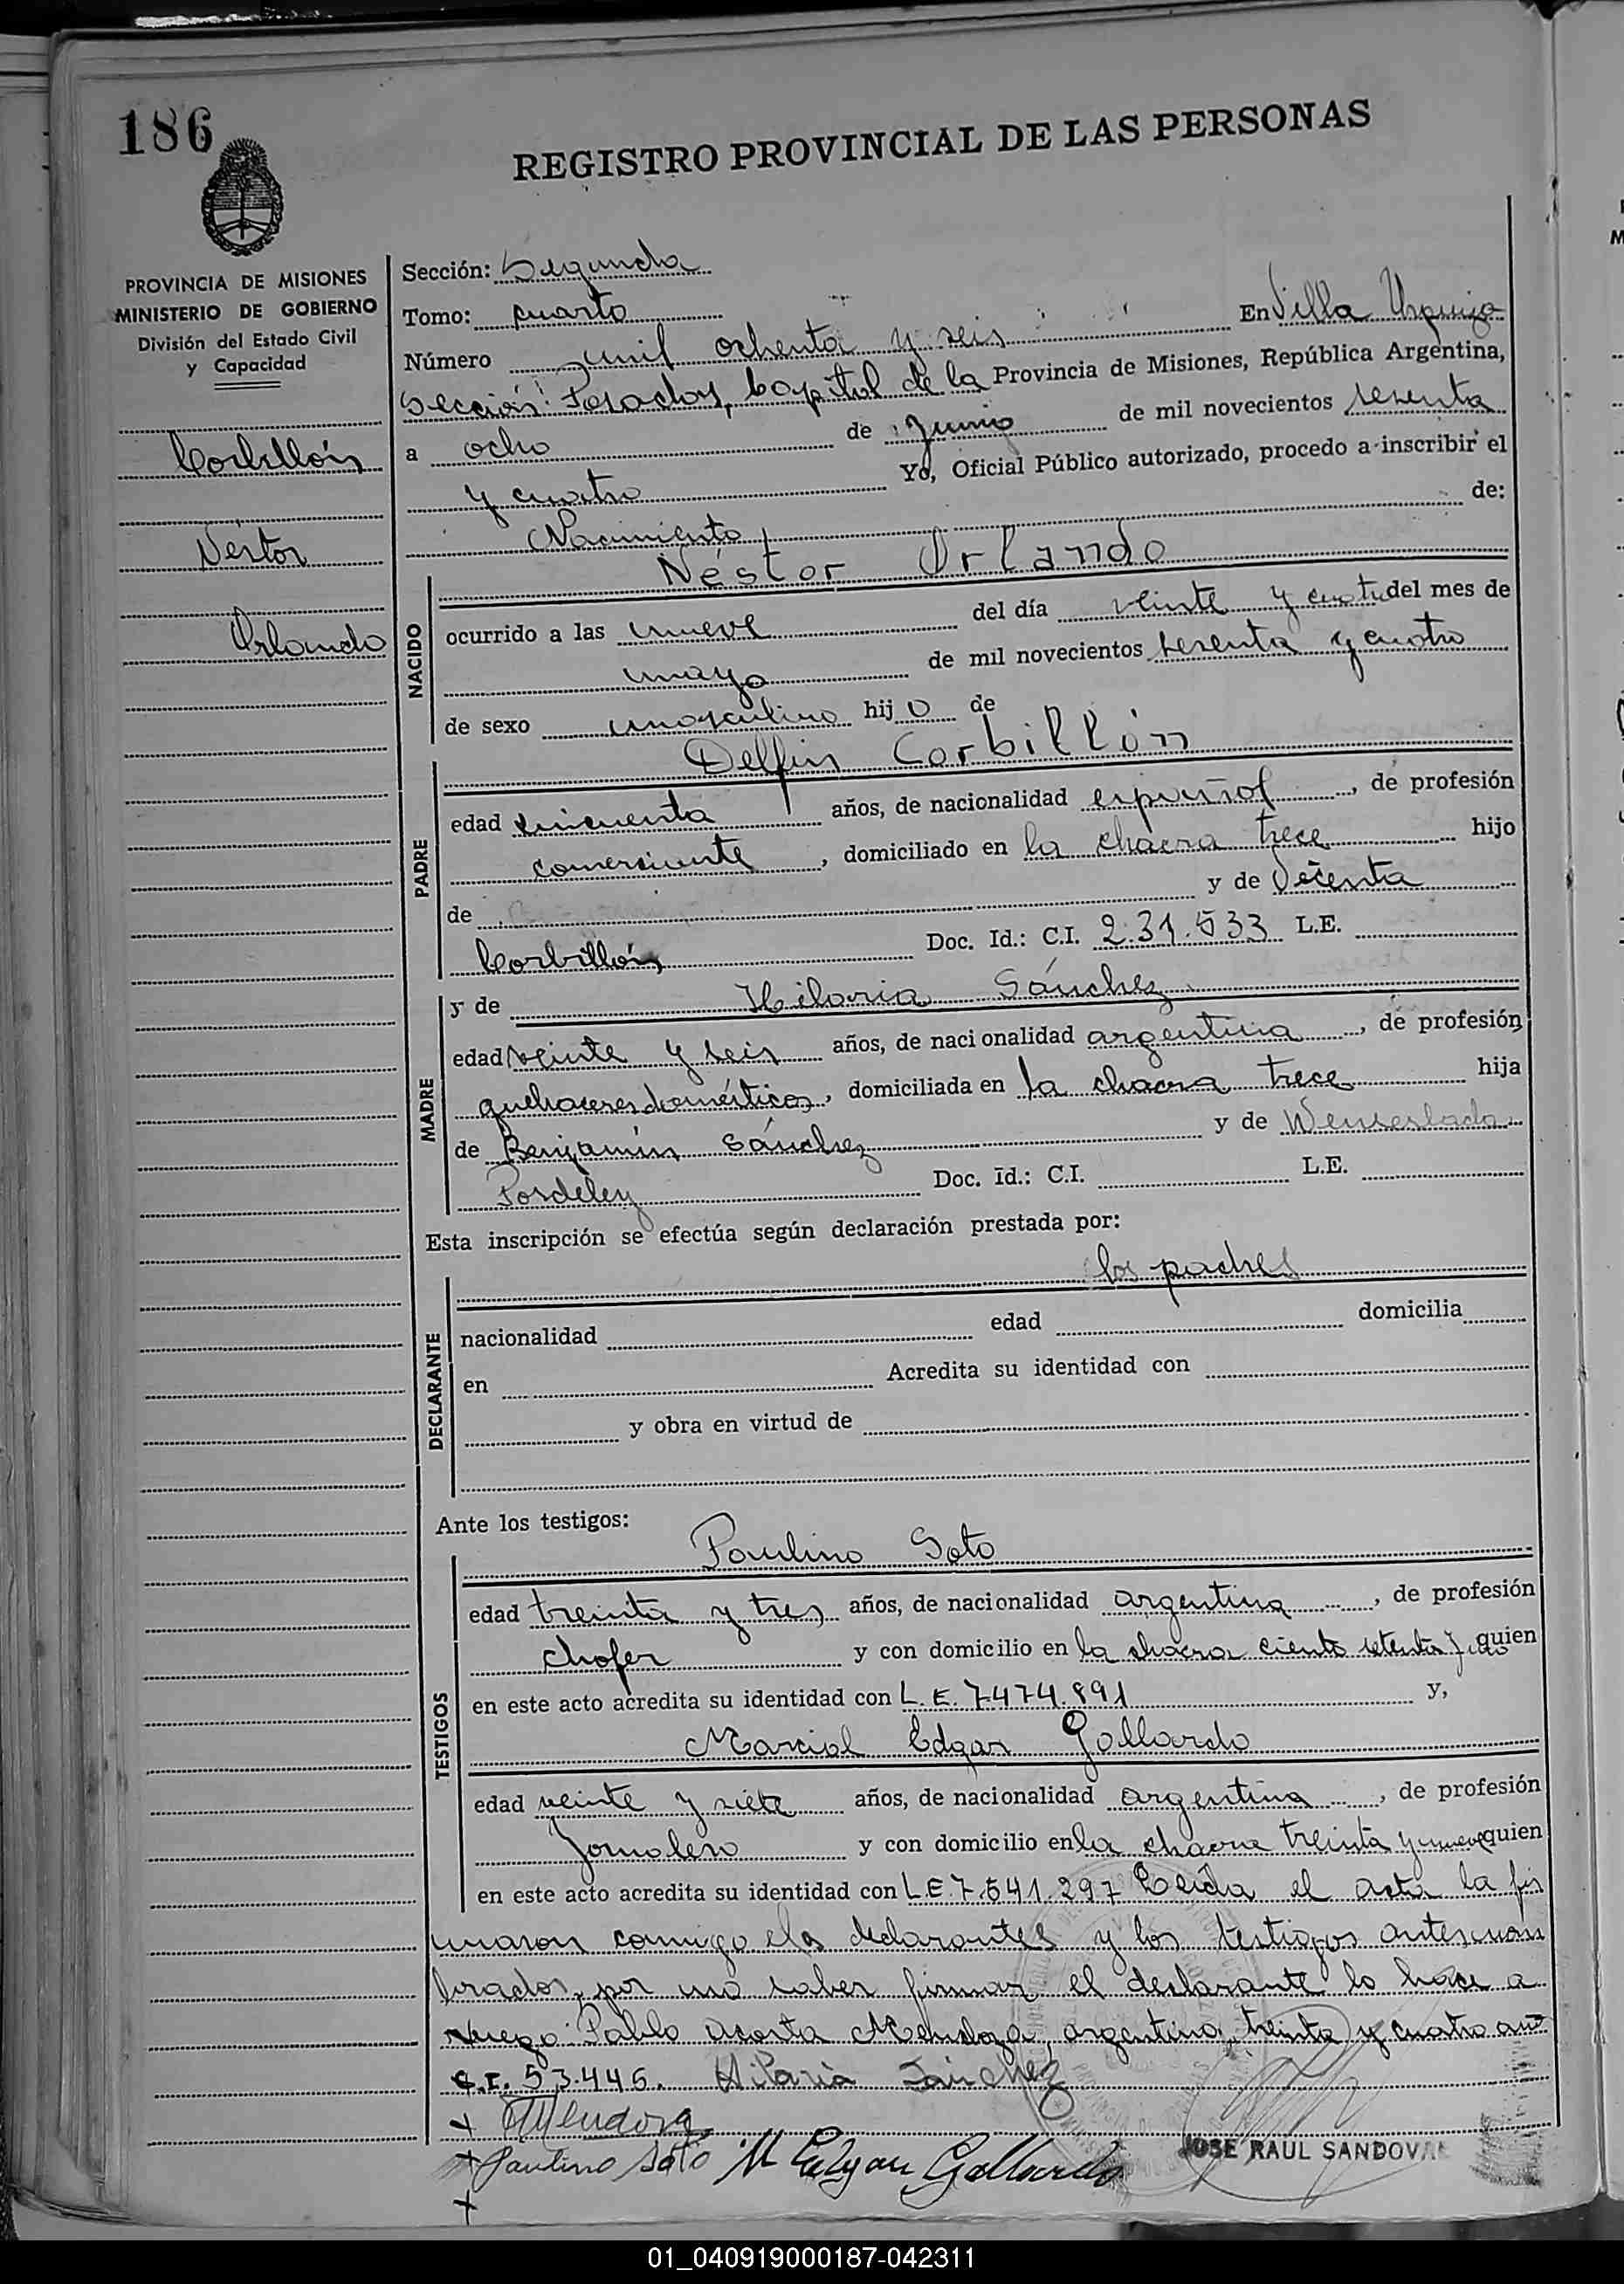 186
REGISTRO PROVINCIAL DE LAS PERSONAS
PROVINCIA DE MISIONES
MINISTERIO DE GOBIERNO
División del Estado Civil
y Capacidad
Corbillón
Néstor
Orlando
Sección: Segunda
Tomo: cuarto
Número mil ochenta y seis En Villa Urquiza
Sección Posadas, Capital de la Provincia de Misiones, República Argentina,
a ocho de Junio de mil novecientos sesenta
y cuatro Yo, Oficial Público autorizado, procedo a inscribir el
Nacimiento de:
NACIDO
Néstor Orlando
ocurrido a las nueve del día veinte y cuatro del mes de
mayo de mil novecientos sesenta y cuatro
de sexo masculino hijo de
PADRE
Delfin Corbillón
edad cincuenta años, de nacionalidad español, de profesión
comerciante, domiciliado en la chacra trece hijo
de y de
Corbillón Doc. Id.: C.I. 2.31.533 L.E.
MADRE
y de Hilaria Sánchez
edad veinte y seis años, de nacionalidad argentina, de profesión
quehaceres domésticos, domiciliada en la chacra trece hija
de Benjamín Sánchez y de Wenseslada
Doc. Id.: C.I. L.E.
Esta inscripción se efectúa según declaración prestada por:
DECLARANTE
los padres
nacionalidad edad domicilia
en Acredita su identidad con
y obra en virtud de
Ante los testigos:
TESTIGOS
Paulino Soto
edad treinta y tres años, de nacionalidad argentina, de profesión
chofer y con domicilio en la chacra ciento setenta quien
en este acto acredita su identidad con L.E. 7.474.891 y,
Marcial Edgar Gallardo
edad veinte y siete años, de nacionalidad argentina, de profesión
Jornalero y con domicilio en la chacra treinta y nueve quien
en este acto acredita su identidad con L.E 7.541.297 Leída el acta la fir
maron conmigo los declarantes y los testigos antesnom
brados, por no saber firmar el declarante lo hace a
ruego Pablo Acosta Mendoza, argentino, treinta y cuatro
C.I. 53.446. Hilaria Sánchez
Mendoza
Paulino Soto M Edgar Gallardo
JOSE RAUL SANDOVAL
01_040919000187-042311